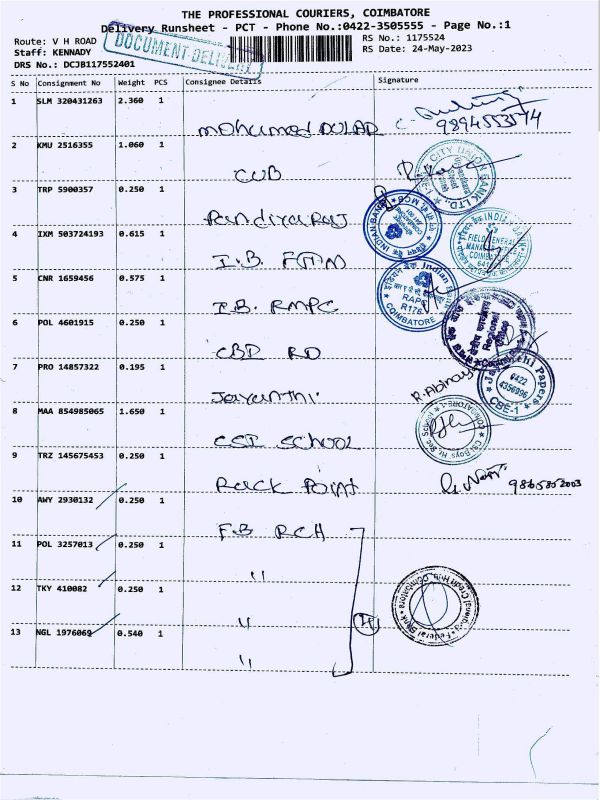 THE PROFESSIONAL COURIERS, COIMBATORE
Delivery Runsheet - PCT - Phone No.:0422-3505555 - Page No.:1
Route: V H ROAD
RS No.: 1175524
Staff: KENNADY
RS Date: 24-May-2023
DRS No.: DCJB117552401
DOCUMENT DELIVERY
S No Consignment No Weight PCS Consignee Details Signature
1 SLM 320431263 2.360 1
mohamed
9894553574
2 KMU 2516355 1.060 1
CUB
CITY UNION BANK LTD.
3 TRP 5900357 0.250 1
Pandiyaraj
INDIAN BANK
4 IXM 503724193 0.615 1
I.B. FGMO
FIELD GENERAL
COIMBATORE
5 CNR 1659456 0.575 1
I.B. RAPC
Indian Bank
RAPC
R176
COIMBATORE
6 POL 4601915 0.250 1
CBI RO
Regional
7 PRO 14857322 0.195 1
Jayanthi
R. Abinaya
Jayanthi Papers
0422
4356096
CBE-1
8 MAA 854985065 1.650 1
CSI School
CSI Boys Hr. Sec. School
9 TRZ 145675453 0.250 1
Rack Point
9865852003
10 AWY 2930132 0.250 1
F.B RCH
11 POL 3257013 0.250 1
"
12 TKY 410082 0.250 1
"
Federal Bank
13 NGL 1976069 0.540 1
"